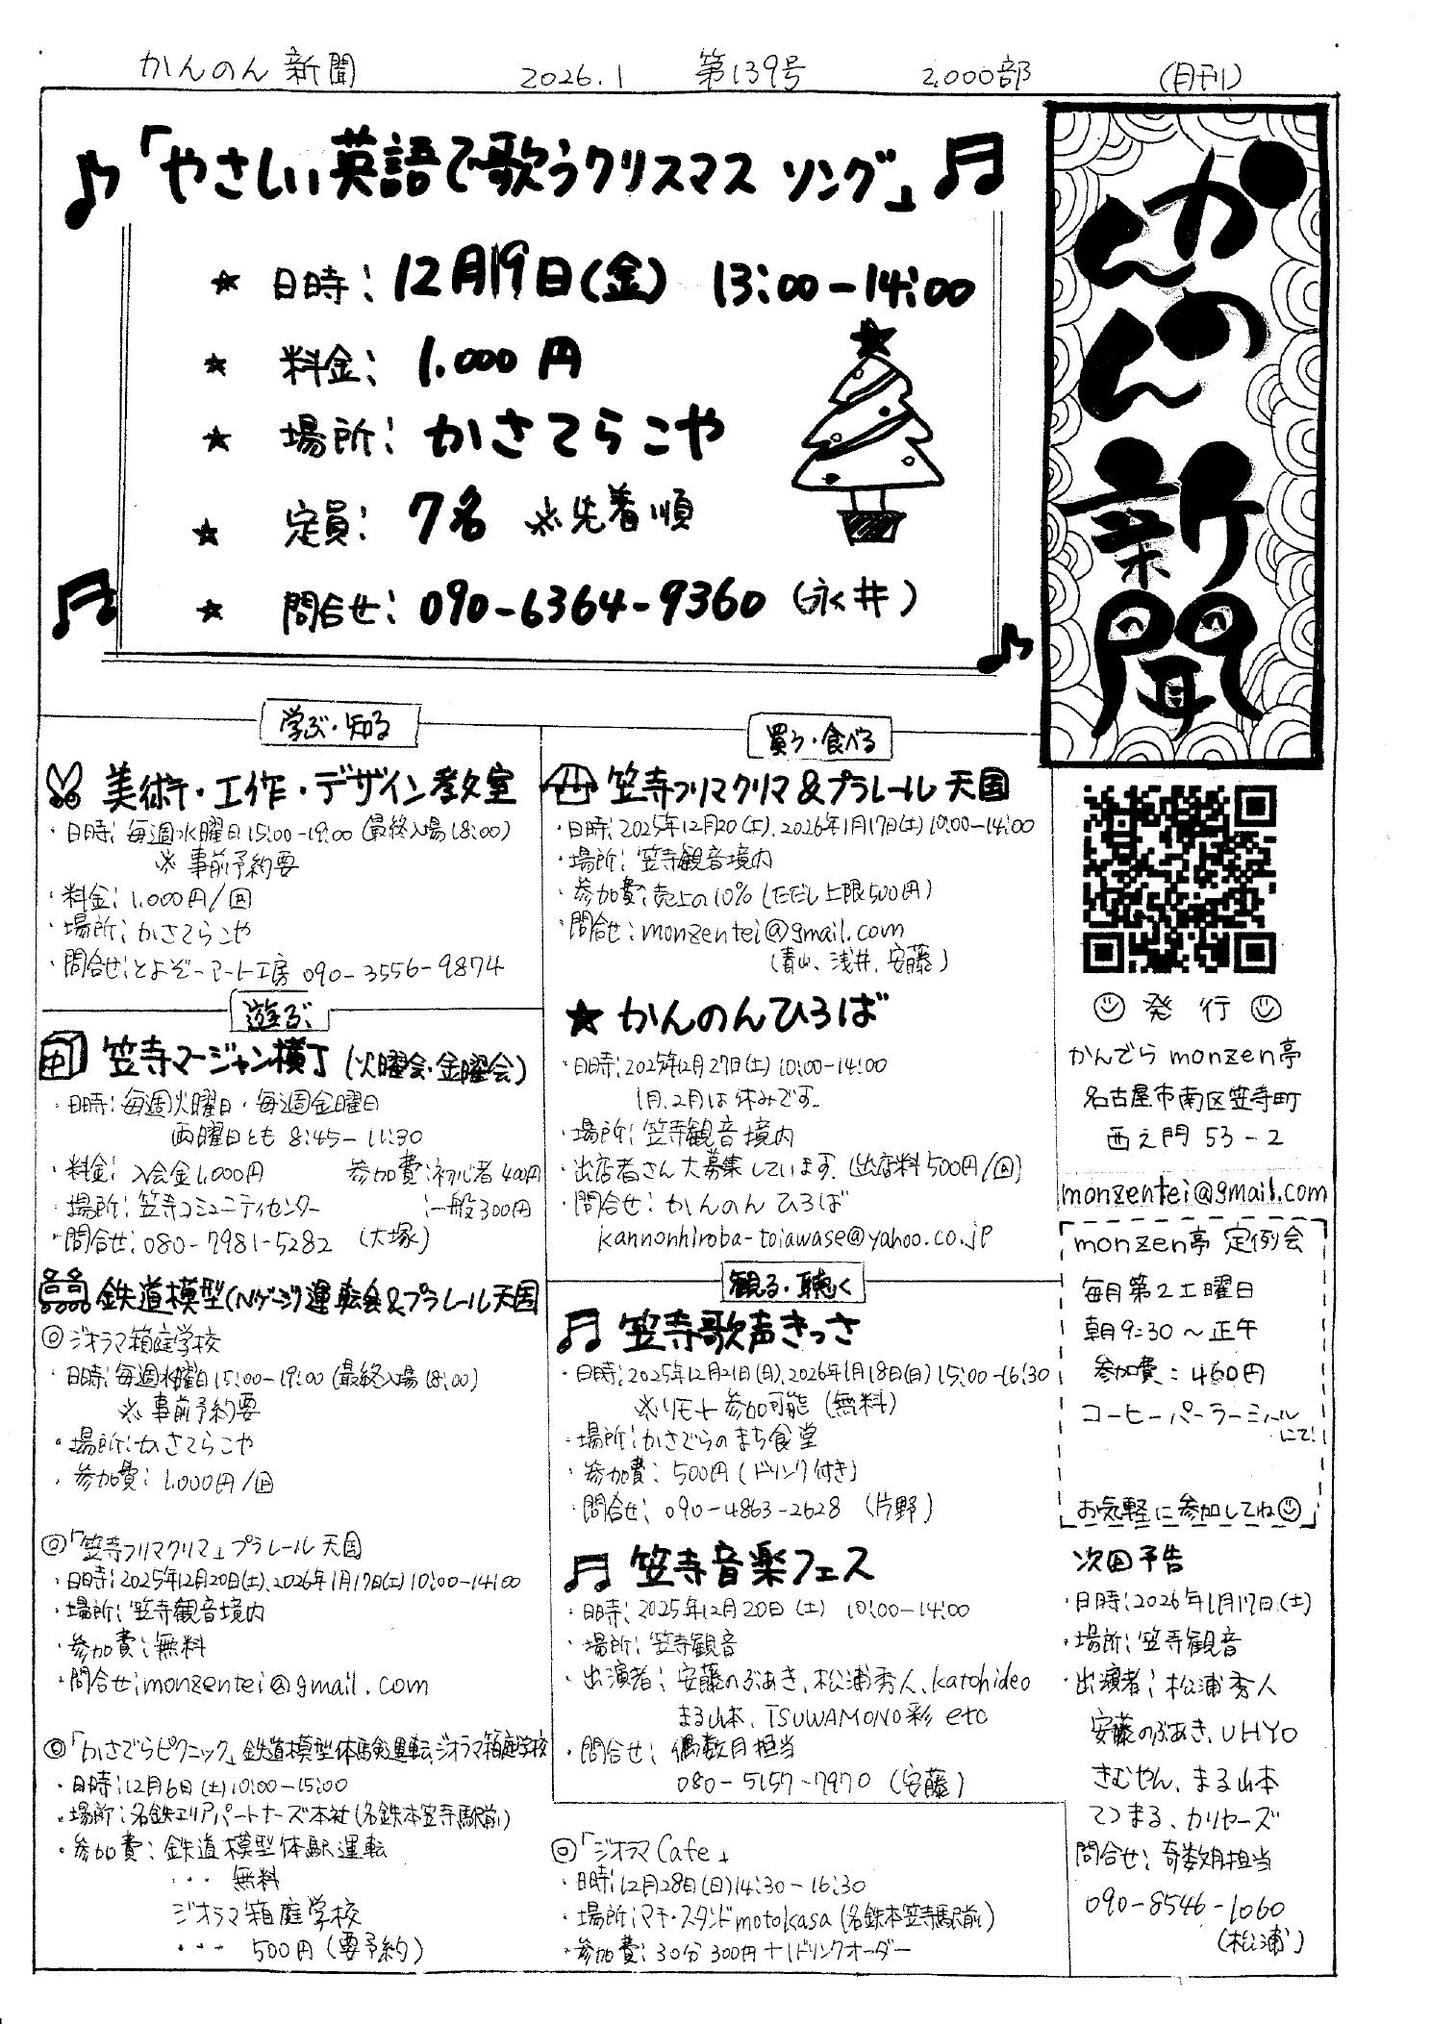 かんのん新聞 2026.1 第139号 2,000部 (月刊)
「やさしい英語で歌うクリスマスソング」
★ 日時: 12月19日(金) 13:00-14:00
★ 料金: 1.000円
★ 場所: かさてらこや
★ 定員: 7名 ※先着順
★ 問合せ: 090-6364-9360 (永井)
かんのん新聞
学ぶ・知る
美術・工作・デザイン教室
・日時: 毎週水曜日15:00-19:00 (最終入場18:00)
※事前予約要
・料金: 1,000円/回
・場所: かさてらこや
・問合せ: とよぞーアート工房 090-3556-9874
遊ぶ
中 笠寺マージャン横丁 (火曜会・金曜会)
・日時: 毎週火曜日・毎週金曜日
両曜日とも 8:45-11:30
・料金: 入会金1,000円 参加費: 初心者400円
・場所: 笠寺コミュニティセンター :一般300円
・問合せ: 080-7981-5282 (大塚)
鉄道模型(Nゲージ)運転会&プラレール天国
◎ジオラマ箱庭学校
・日時: 毎週水曜日15:00-19:00 (最終入場18:00)
※事前予約要
・場所: かさてらこや
・参加費: 1,000円/回
◎「笠寺フリマクリマ」プラレール天国
・日時: 2025年12月20日(土)、2026年1月17日(土) 10:00-14:00
・場所: 笠寺観音境内
・参加費: 無料
・問合せ: monzentei@gmail.com
◎「かさでらピクニック」鉄道模型体験運転、ジオラマ箱庭学校
・日時: 12月6日(土) 10:00-15:00
・場所: 名鉄エリアパートナーズ本社 (名鉄本笠寺駅前)
・参加費: 鉄道模型体験運転
・・・ 無料
ジオラマ箱庭学校
・・・ 500円 (要予約)
買う・食べる
笠寺フリマクリマ&プラレール天国
・日時: 2025年12月20(土)、2026年1月17日(土) 10:00-14:00
・場所: 笠寺観音境内
・参加費: 売上の10% (ただし上限500円)
・問合せ: monzentei@gmail.com
(青山、浅井、安藤)
★ かんのんひろば
・日時: 2025年12月27日(土) 10:00-14:00
1月、2月は休みです。
・場所: 笠寺観音境内
・出店者さん大募集しています。(出店料500円/回)
・問合せ: かんのんひろば
kannonhiroba-toiawase@yahoo.co.jp
観る・聴く
笠寺歌声きっさ
・日時: 2025年12月21日(日)、2026年1月18日(日) 15:00-16:30
※リモート参加可能 (無料)
・場所: かさでらのまち食堂
・参加費: 500円 (ドリンク付き)
・問合せ: 090-4863-2628 (片野)
笠寺音楽フェス
・日時: 2025年12月20日(土) 10:00-14:00
・場所: 笠寺観音
・出演者: 安藤のぶあき、松浦秀人、katohideo
まる山本、TSUWAMONO彩 etc
・問合せ: 偶数月担当
080-5157-7970 (安藤)
◎「ジオラマCafe」
・日時: 12月28日(日) 14:30-16:30
・場所: マチ・スタンドmotokasa (名鉄本笠寺駅前)
・参加費: 30分 300円+1ドリンクオーダー
発行
かんでらmonzen亭
名古屋市南区笠寺町
西之門53-2
monzentei@gmail.com
monzen亭 定例会
毎月第2土曜日
朝9:30〜正午
参加費: 460円
コーヒーパーラーミハル
にて!
お気軽に参加してね
次回予告
・日時: 2026年1月17日(土)
・場所: 笠寺観音
・出演者: 松浦秀人
安藤のぶあき、UHYO
きむやん、まる山本
てつまる、カリヤーズ
問合せ: 奇数月担当
090-8546-1060
(松浦)